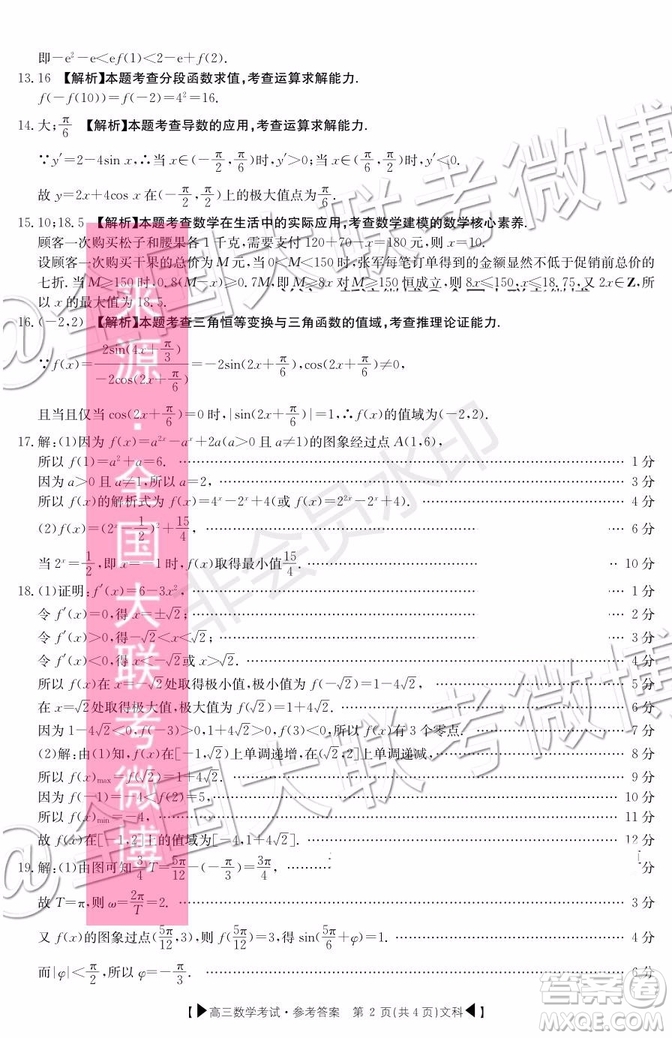 即-e²-e<ef(1)<2-e+f(2).
13. 16 【解析】本题考查分段函数求值,考查运算求解能力.
f(-f(10))=f(-2)=4²=16.
14. 大;π/6 【解析】本题考查导数的应用,考查运算求解能力.
∵y′=2-4sin x,∴当x∈(-π/2,π/6)时,y′>0;当x∈(π/6,π/2)时,y′<0.
故y=2x+4cos x在(-π/2,π/2)上的极大值点为π/6.
15. 10;18.5 【解析】本题考查数学在生活中的实际应用,考查数学建模的数学核心素养.
顾客一次购买松子和腰果各1千克,需要支付120+70-x=180元,则x=10.
顾客一次购买干果的总价为M元,当0<M<150时,张军每笔订单得到的金额显然不低于促销前总价的
七折.当M≥150时,0.8(M-x)≥0.7M,即M≥8x对M≥150恒成立,则8x≤150,x≤18.75,又2x∈Z,所
以x的最大值为18.5.
16. (-2,2) 【解析】本题考查三角恒等变换与三角函数的值域,考查推理论证能力.
∵f(x)=2sin(4x+π/3)/-2cos(2x+π/6)=-2sin(2x+π/6),cos(2x+π/6)≠0,
且当且仅当cos(2x+π/6)=0时,|sin(2x+π/6)|=1,∴f(x)的值域为(-2,2).
17. 解:(1)因为f(x)=a²ˣ-aˣ+2a(a>0且a≠1)的图象经过点A(1,6),
所以f(1)=a²+a=6. 1分
因为a>0 3分
所以f(x)的解析式为f(x)=4ˣ-2ˣ+4(或f(x)=2²ˣ-2ˣ+4). 4分
(2)f(x)=(2ˣ-1/2)²+15/4, 6分
当2ˣ=1/2,即x=-1时,f(x)取得最小值15/4. 10分
18. (1)证明:f′(x)=6-3x², 1分
令f′(x)=0,得x=±√2; 2分
令f′(x)>0,得-√2<x<√2; 3分
令f′(x)<0,得 4分
所以f(x)在x=-√2处取得极小值,极小值为f(-√2)=1-4√2, 5分
在x=√2处取得极大值,极大值为f(√2)=1+4√2. 6分
因为1-4√2<0,f(-3)>0,f(3)<0,所以f(x)有3个零点. 7分
(2)解:由(1)知,f(x)在[-1,√2]上单调递增,在[√2,2]上单调递减, 8分
所以f(x)max=f(√2)=1+4√2. 9分
因为f(-1)=-4<f(2)=5, 10分
所以f(x)min=-4, 11分
故f(x)在[-1,2]上的值域为[-4,1+4√2]. 12分
19. 解:(1)由图可知3/4T=5π/12-(-π/3)=3π/4, 1分
故T=π,则ω=2π/T=2. 2分
又f(x)的图象过点(5π/12,3),则f(5π/12)=3sin(5π/6+φ)=3. 4分
而|φ|<π/2,所以φ= 6分
高三数学考试·参考答案 第2页(共4页)文科
来源:全国大联考微博
@全国大联考微博
@全国大联考微博
非会员水印